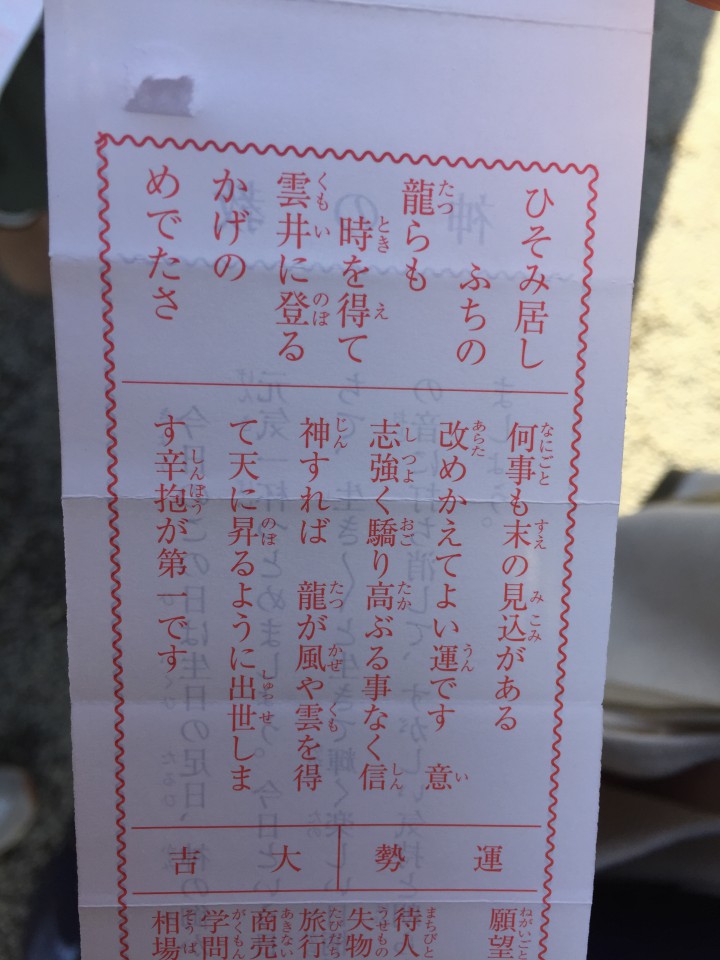 ひそみ居し
ふちの
龍らも
時を得て
雲井に登る
かげの
めでたさ
何事も末の見込がある
改めかえてよい運です 意
志強く驕り高ぶる事なく信
神すれば 龍が風や雲を得
て天に昇るように出世しま
す辛抱が第一です
運勢
大吉
願望
待人
失物
旅行
商売
学問
相場